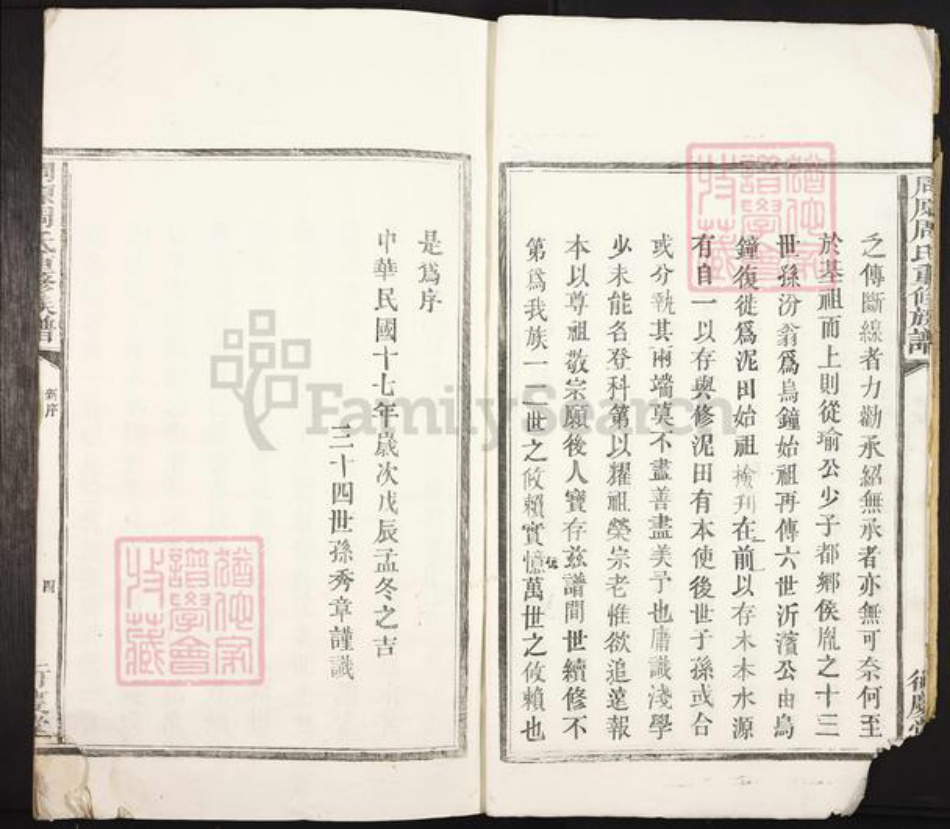 周氏重修族譜
之傳斷線者力勸承紹無承者亦無可奈何至
於基祖而上則從瑜公少子都鄉侯胤之十三
世孫汾翁爲烏鐘始祖再傳六世沂濱公由烏
鐘復徙爲泥田始祖檢刋在前以存木本水源
有自一以存與修泥田有本使後世子孫或合
或分執其兩端莫不盡善盡美予也庸識淺學
少未能名登科第以耀祖榮宗老惟欲追遠報
本以尊祖敬宗願後人寶存茲譜間世續修不
第爲我族一二世之攸賴實億萬世之攸賴也
是爲序
中華民國十七年歲次戊辰孟冬之吉
三十四世孫秀章謹識
新序
四
FamilySearch
猶他家譜學會收藏
猶他家譜學會收藏